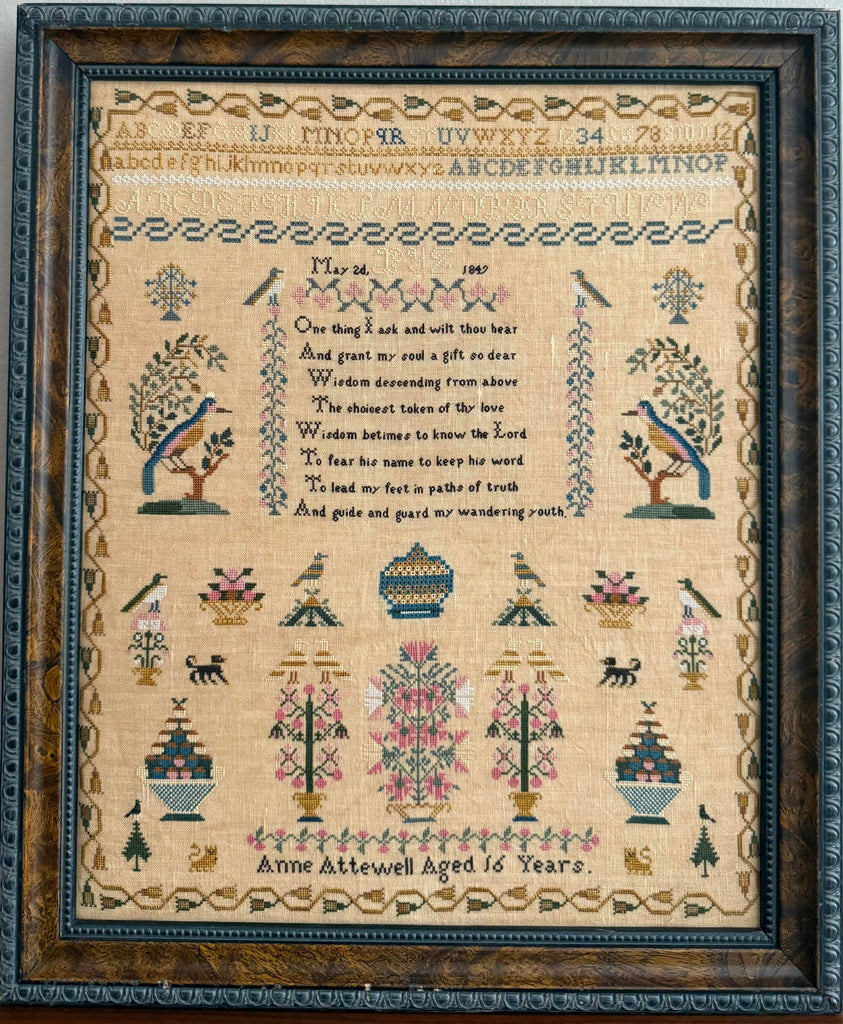 AB EF IJ MNOPQR UVWXYZ 34 78 12
abcdefghijklmnopqrstuvwxyz ABCDEFGHIJKLMNOP
ABCDEFGHIJKLMNOPQRSTUVW
XYZ
May 2d, 1849
One thing I ask and wilt thou hear
And grant my soul a gift so dear
Wisdom descending from above
The choicest token of thy love
Wisdom betimes to know the Lord
To fear his name to keep his word
To lead my feet in paths of truth
And guide and guard my wandering youth.
Anne Attewell Aged 16 Years.